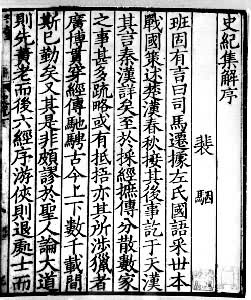 史紀集解序
裴駰
班固有言曰司馬遷據左氏國語采世本
戰國策述楚漢春秋接其後事訖于天漢
其言秦漢詳矣至於採經摭傳分散數家
之事甚多疏略或有抵捂亦其所涉獵者
廣博貫穿經傳馳騁古今上下數千載間
斯已勤矣又其是非頗謬於聖人論大道
則先黃老而後六經序游俠則退處士而